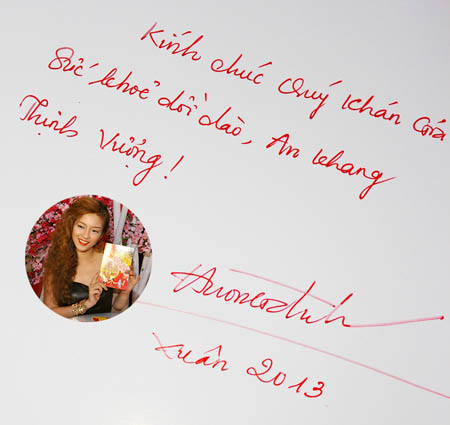 Kính chúc Quý khán Giả
Sức khoẻ dồi dào, An khang
Thịnh Vượng!
Xuân 2013